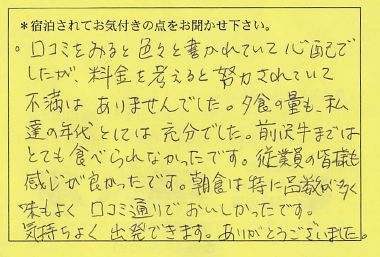 *宿泊されてお気付きの点をお聞かせ下さい。
○口コミをみると色々と書かれていて心配で
したが、料金を考えると努力されていて
不満はありませんでした。夕食の量も、私
達の年代としては充分でした。前沢牛までは
とても食べられなかったです。従業員の皆様も
感じが良かったです。朝食は特に品数が多く
味もよく口コミ通りでおいしかったです。
気持ちよく出発できます。ありがとうございました。